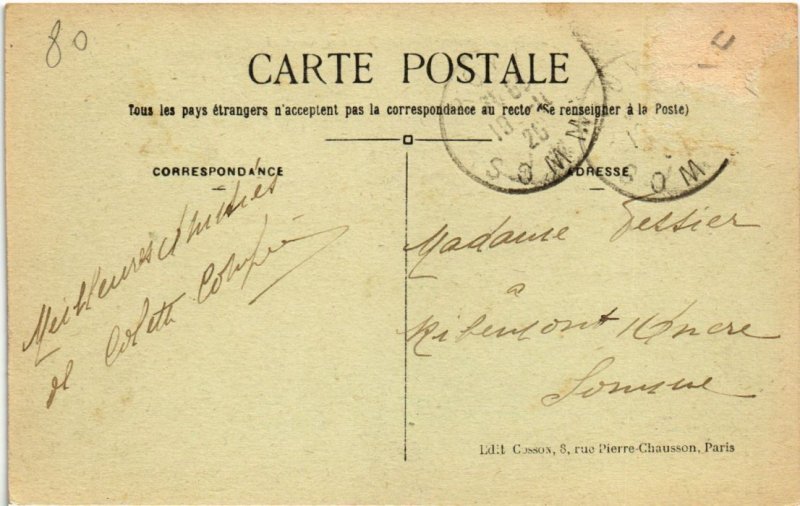 80
CARTE POSTALE
Tous les pays étrangers n'acceptent pas la correspondance au recto (Se renseigner à la Poste)
CORRESPONDANCE
ADRESSE
Meilleures amitiés
de Colette
Madame Tessier
à
Ribemont s/Ancre
Somme
Edit Cosson, 8, rue Pierre-Chausson, Paris
SOMME
SOM